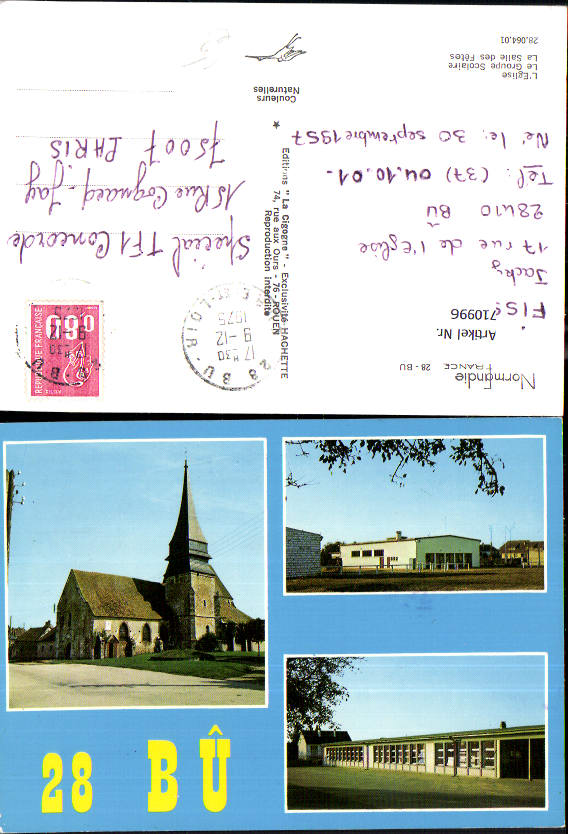 L'Eglise
Le Groupe Scolaire
La Salle des Fêtes
28.064.01
Couleurs
Naturelles
Editions "La Cigogne" - Exclusivité HACHETTE
74, rue aux Ours - 76 - ROUEN
Reproduction interdite
Normandie
FRANCE
28 - BU
Artikel Nr.
710996
Jacky
17 rue de l'Eglise
28410 BÛ
Tél: (37) 04.10.01.
Né le: 30 septembre 1957
17H30
9-12
1975
28 BU
E-ET-LOIR
REPUBLIQUE FRANÇAISE
0,80
Spécial TF1 Concorde
15 Rue Cognacq-Jay
75007 PARIS
28 BÛ